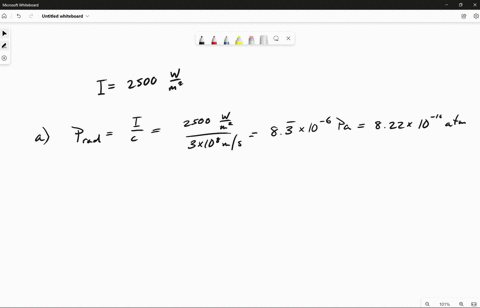 Microsoft Whiteboard
Untitled whiteboard
I = 2500 W/m²
a) P_rad = I/c = (2500 W/m²)/(3×10⁸ m/s) = 8.3̅ × 10⁻⁶ Pa = 8.22 × 10⁻¹¹ atm
101%